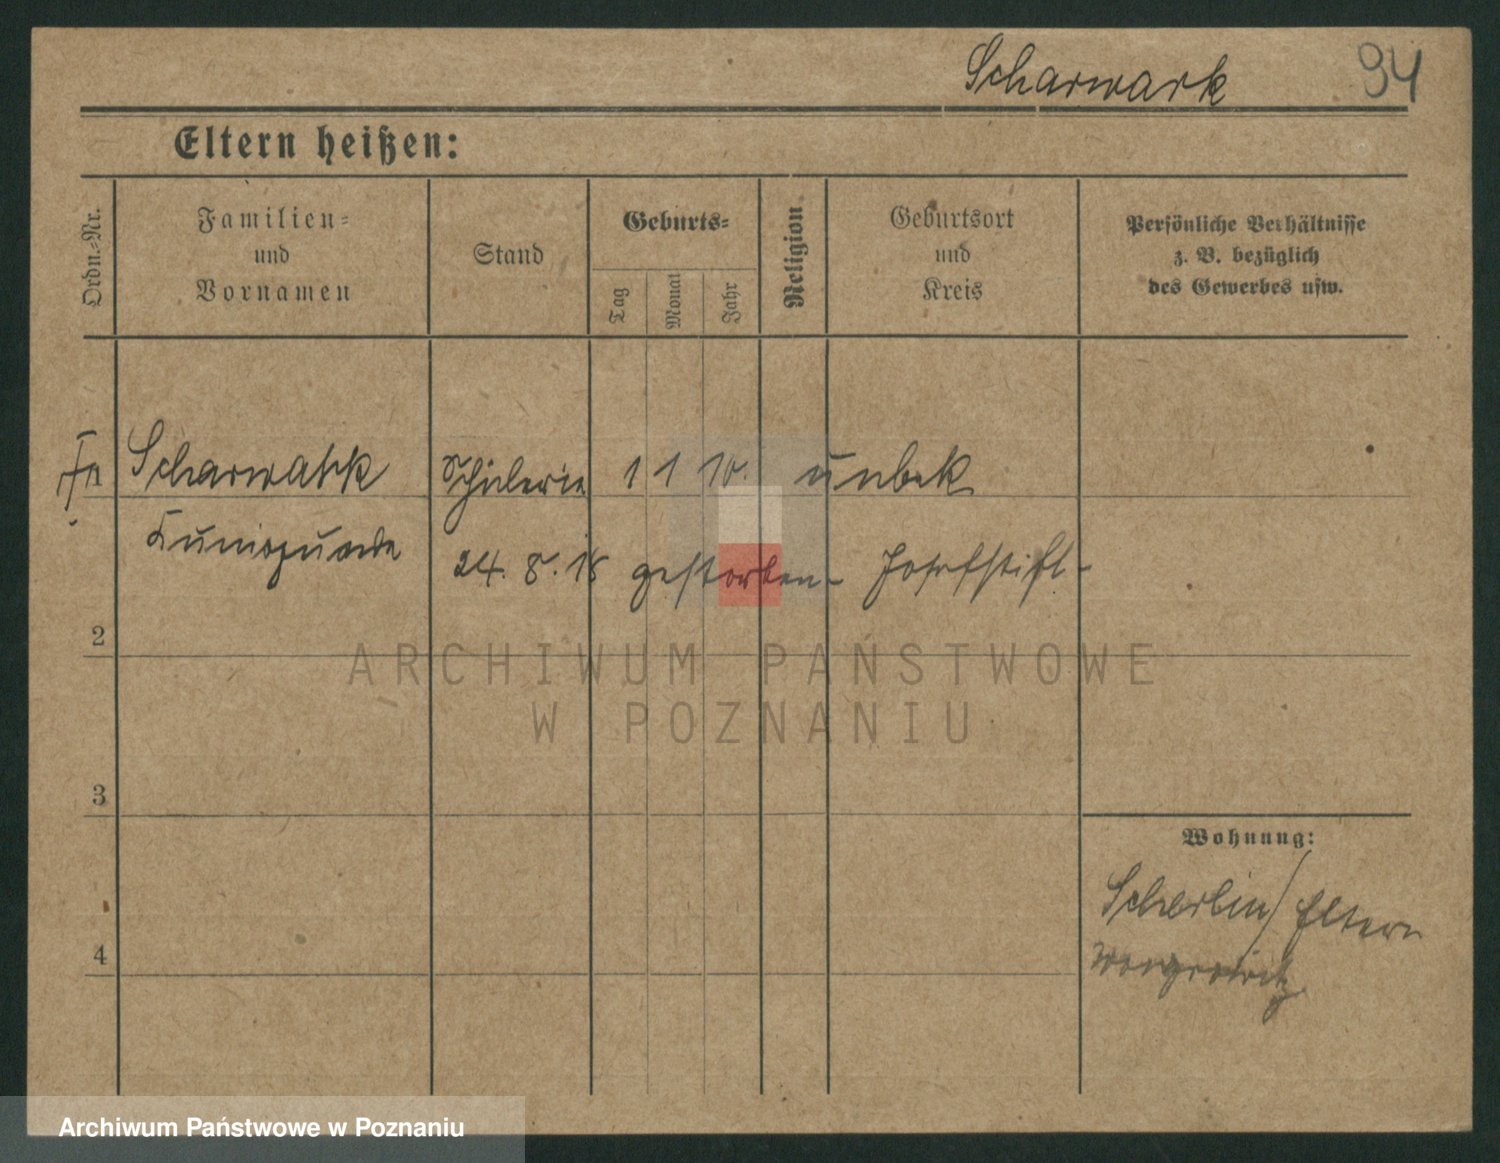 Scharwark 94
Eltern heißen:
Ordn.-Nr.
Familien-
und
Vornamen
Stand
Geburts-
Tag
Monat
Jahr
Religion
Geburtsort
und
Kreis
Persönliche Verhältnisse
z. B. bezüglich
des Gewerbes usw.
Scharwark Schülerin 1 1 10. unbek
Kunigunde
24. 8. 18 gestorben - Josefstift -
2
3
4
Wohnung:
Scherlin / Eltern
ARCHIWUM PAŃSTWOWE
W POZNANIU
Archiwum Państwowe w Poznaniu